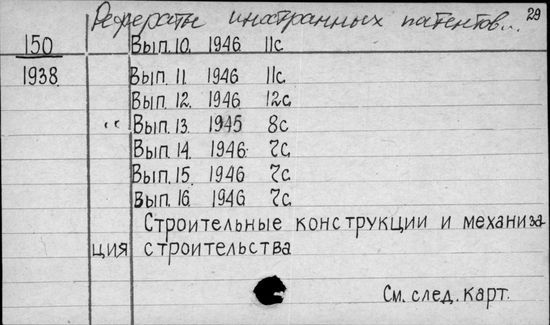 Рефераты иностранных патентов... 29
150 Вып. 10. 1946 11с
1938. Вып. 11. 1946 11с.
Вып. 12. 1946 12с.
" Вып. 13. 1945 8с
Вып. 14. 1946. 7с.
Вып. 15. 1946 7с.
Вып. 16. 1946 7с.
Строительные конструкции и механиза
ция строительства
См. след. карт.